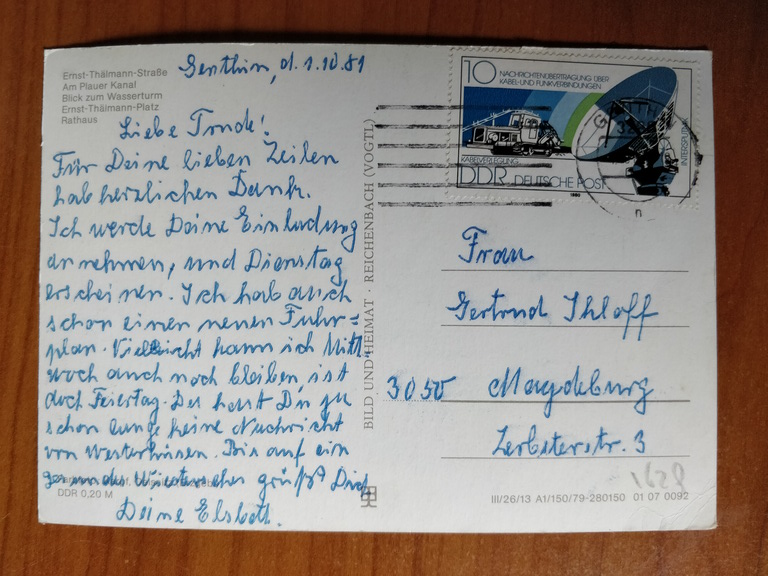 Ernst-Thälmann-Straße
Am Plauer Kanal
Blick zum Wasserturm
Ernst-Thälmann-Platz
Rathaus
Genthin, d. 1.10.81
Liebe Trude!
Für Deine lieben Zeilen
hab herzlichen Dank.
Ich werde Deine Einladung
annehmen, und Dienstag
erscheinen. Ich hab auch
schon einen neuen Fuhr=
plan. Vielleicht kann ich Mitt=
woch auch noch bleiben, ist
doch Feiertag. Du hast Du ja
schon lange keine Nachricht
von Westerhüsen. Bis auf ein
gesundes Wiedersehen grüßt Dich
Deine Elsbeth.
DDR 0,20 M
BILD UND HEIMAT · REICHENBACH (VOGTL)
10 NACHRICHTENÜBERTRAGUNG ÜBER
KABEL-UND FUNKVERBINDUNGEN
KABELVERLEGUNG
INTERSPUTNIK
DDR DEUTSCHE POST
1980
Frau
Gertrud Ihloff
3050 Magdeburg
Zerbsterstr. 3
1628
III/26/13 A1/150/79-280150 01 07 0092